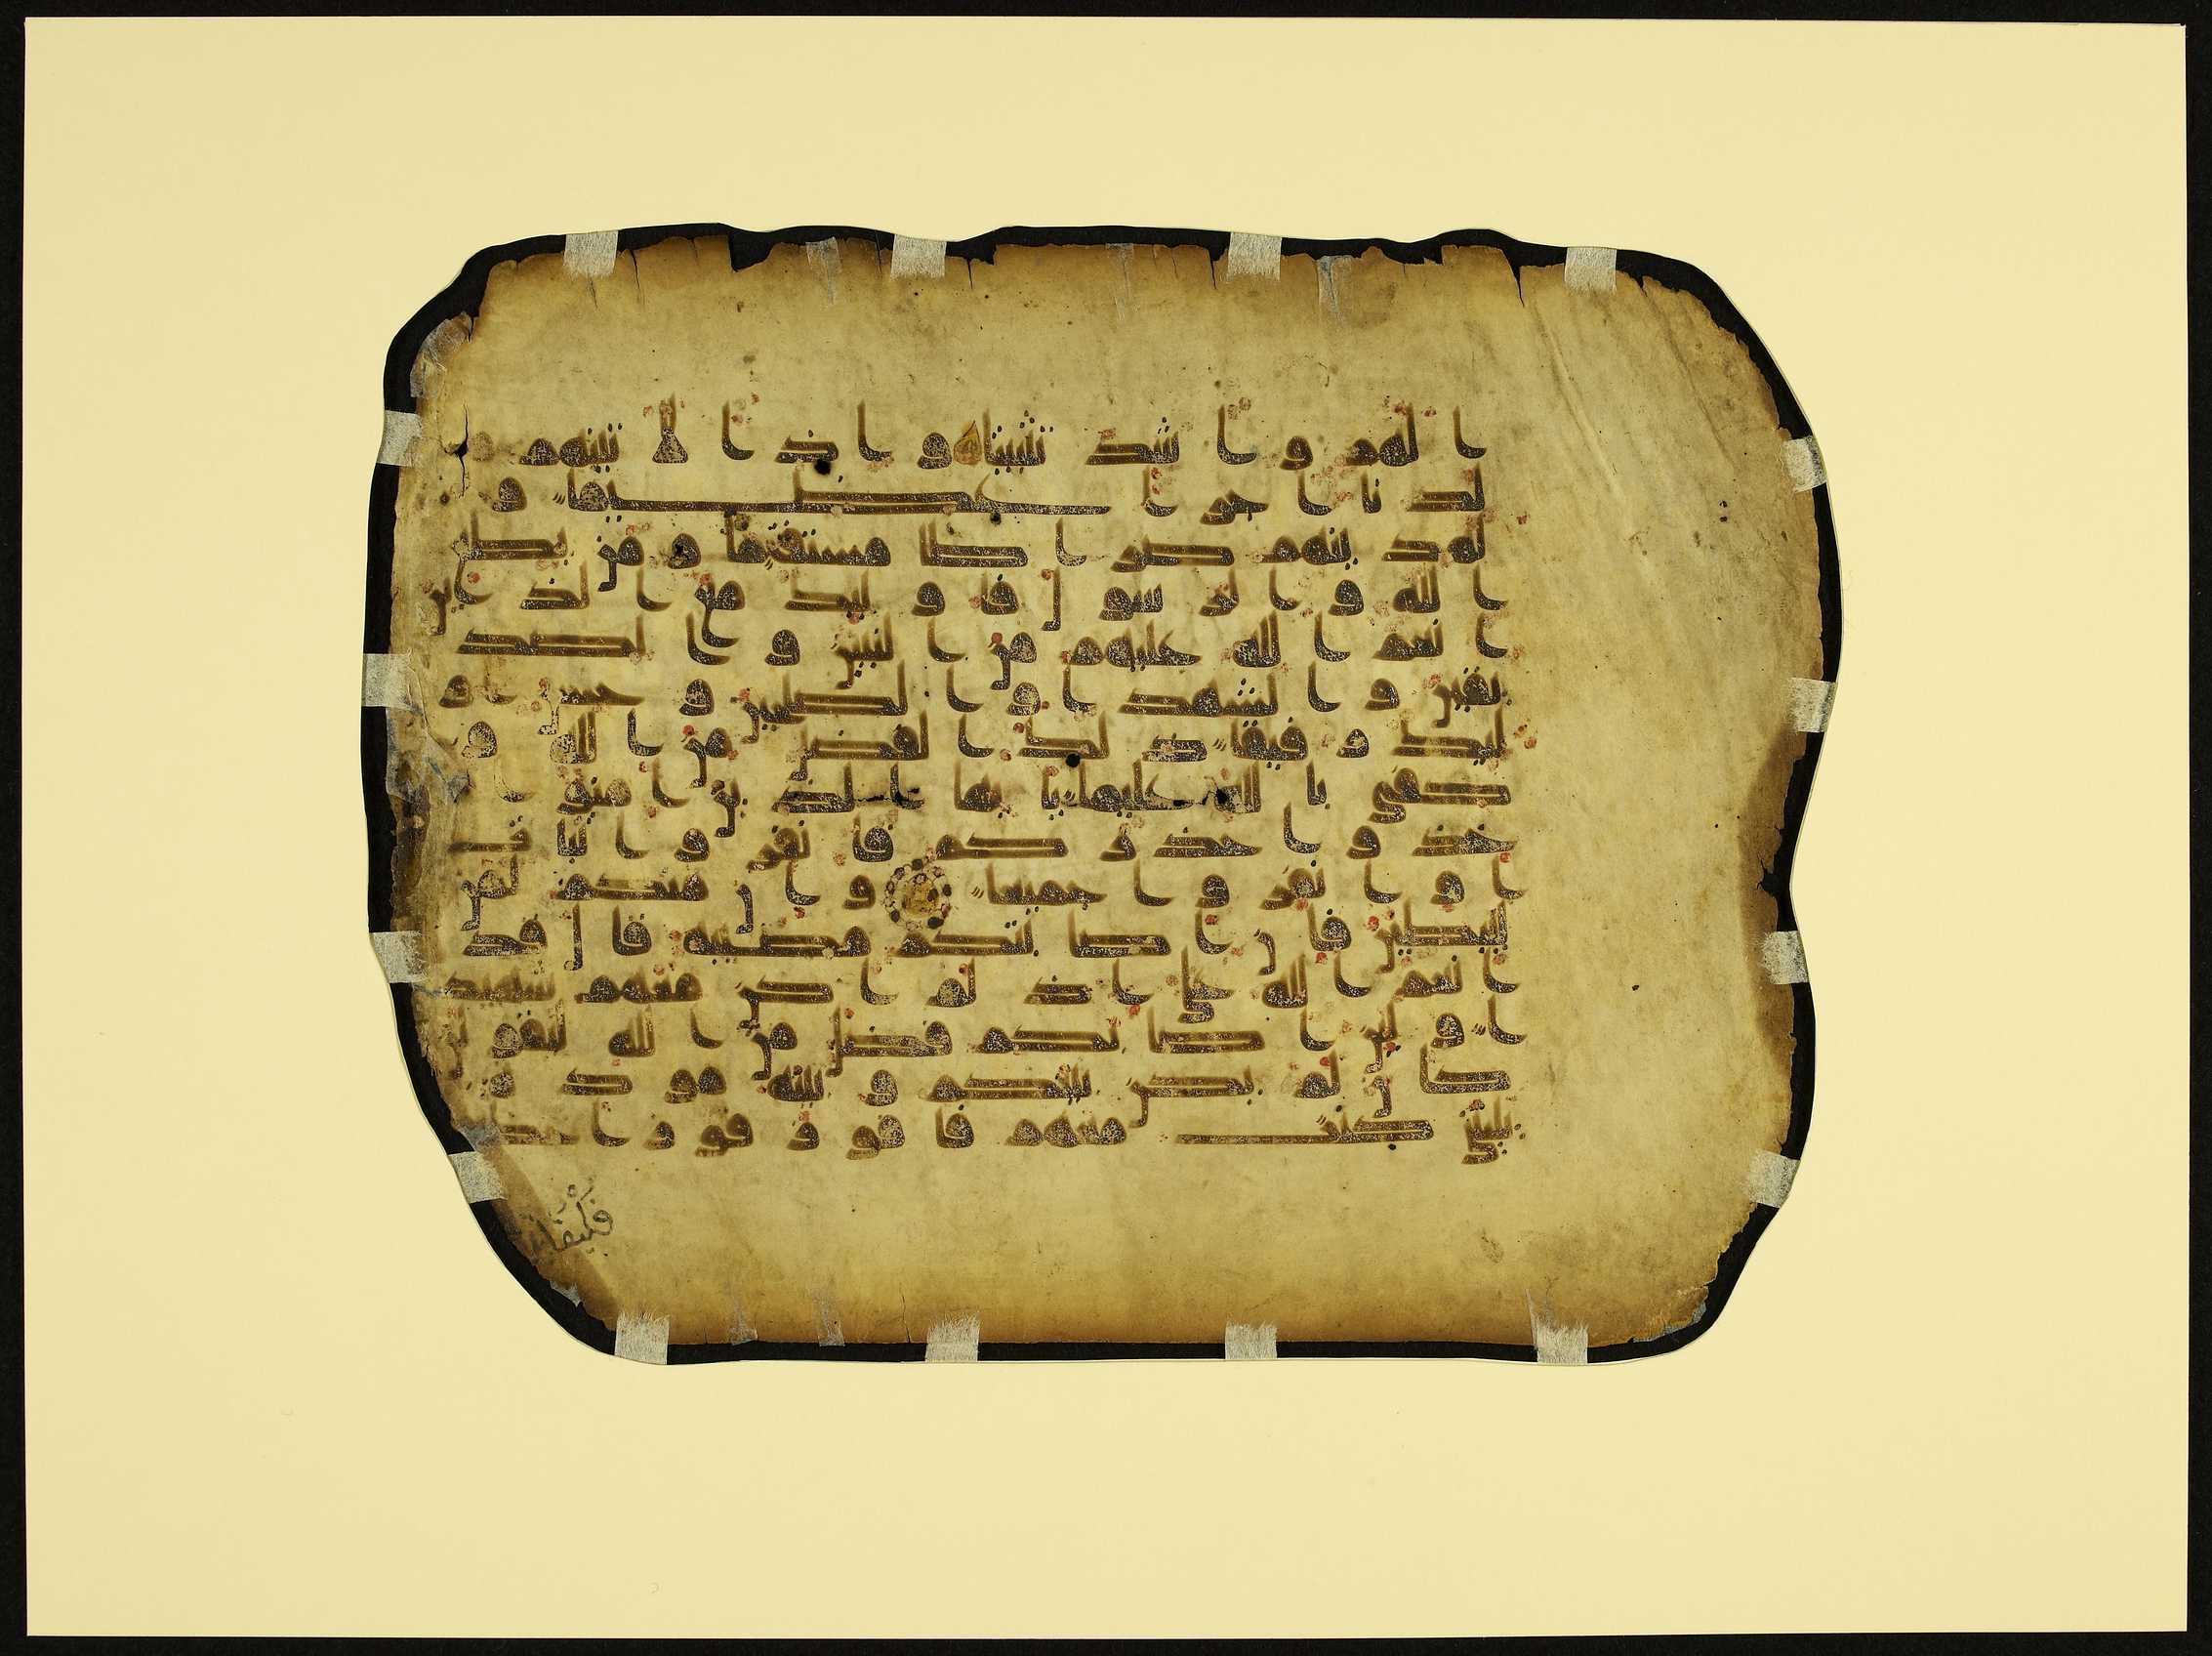 ا لهم و اشد تثبيتا و اذا لا تينهم من
لدنا اجرا عظيما و
لهدينهم صرطا مستقيما و من يطع
الله و الرسول فاوليك مع الذين
انعم الله عليهم من النبين و الصد
يقين و الشهدا و الصلحين و حسن او
ليك رفيقا ذلك الفضل من الله و
كفى بالله عليما يايها الذين امنوا
خذوا حذركم فانفروا ثبات
او انفروا جميعا و ان منكم لمن
ليبطين فان اصبتكم مصيبة قال قد
انعم الله علي اذ لم اكن معهم شهيد
ا و لين اصبكم فضل من الله ليقولن
كان لم تكن بينكم و بينه مودة
يليتني كنت معهم فافوز فوزا عظ